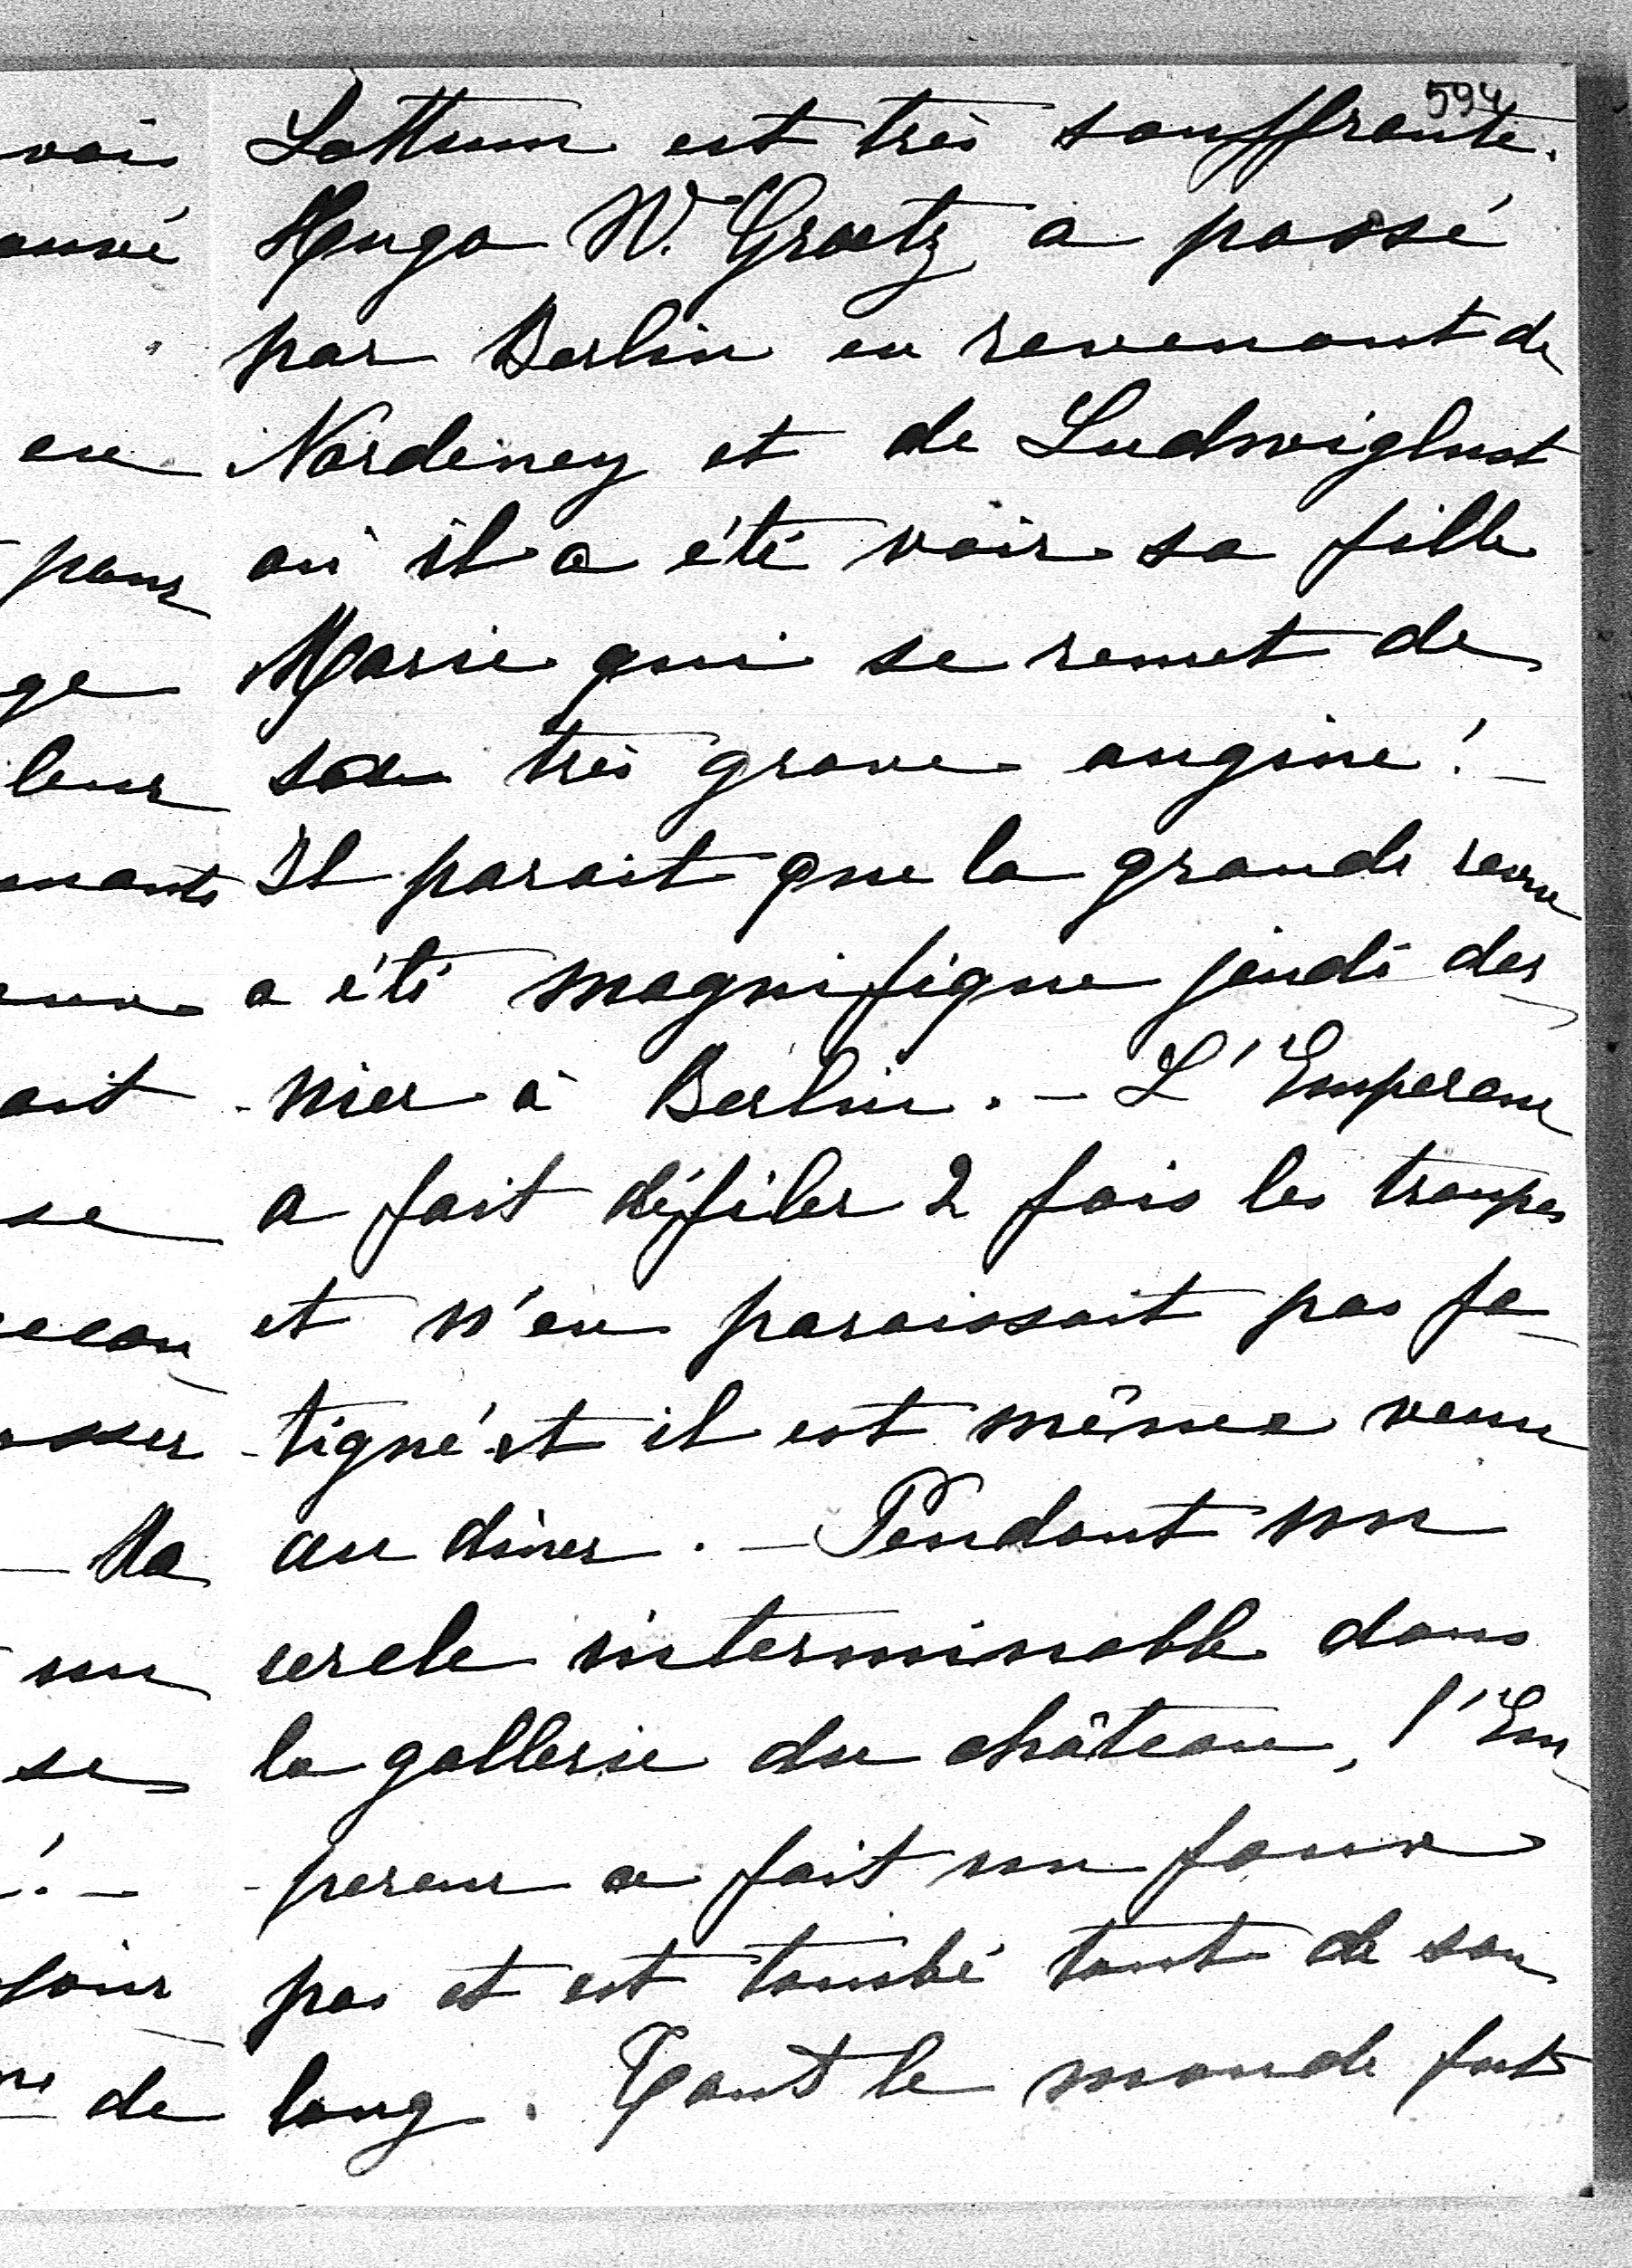 594
Lottum est très souffrante.
Hugo W. Graetz a passé
par Berlin en revenant de
Nordeney et de Ludwiglust
où il a été voir sa fille
Marie qui se remet de
sa très grave angine! –
Il parait que la grande revue
a été magnifique jeudi der-
-nier à Berlin. – L'Empereur
a fait défiler 2 fois les troupes
et n'en paraissait pas fa-
-tigué et il est même venu
au diner. – Pendant un
cercle interminable dans
la gallerie du château, l'Em-
-pereur a fait un faux
pas et est tombé tout de son
long. Tout le monde fut